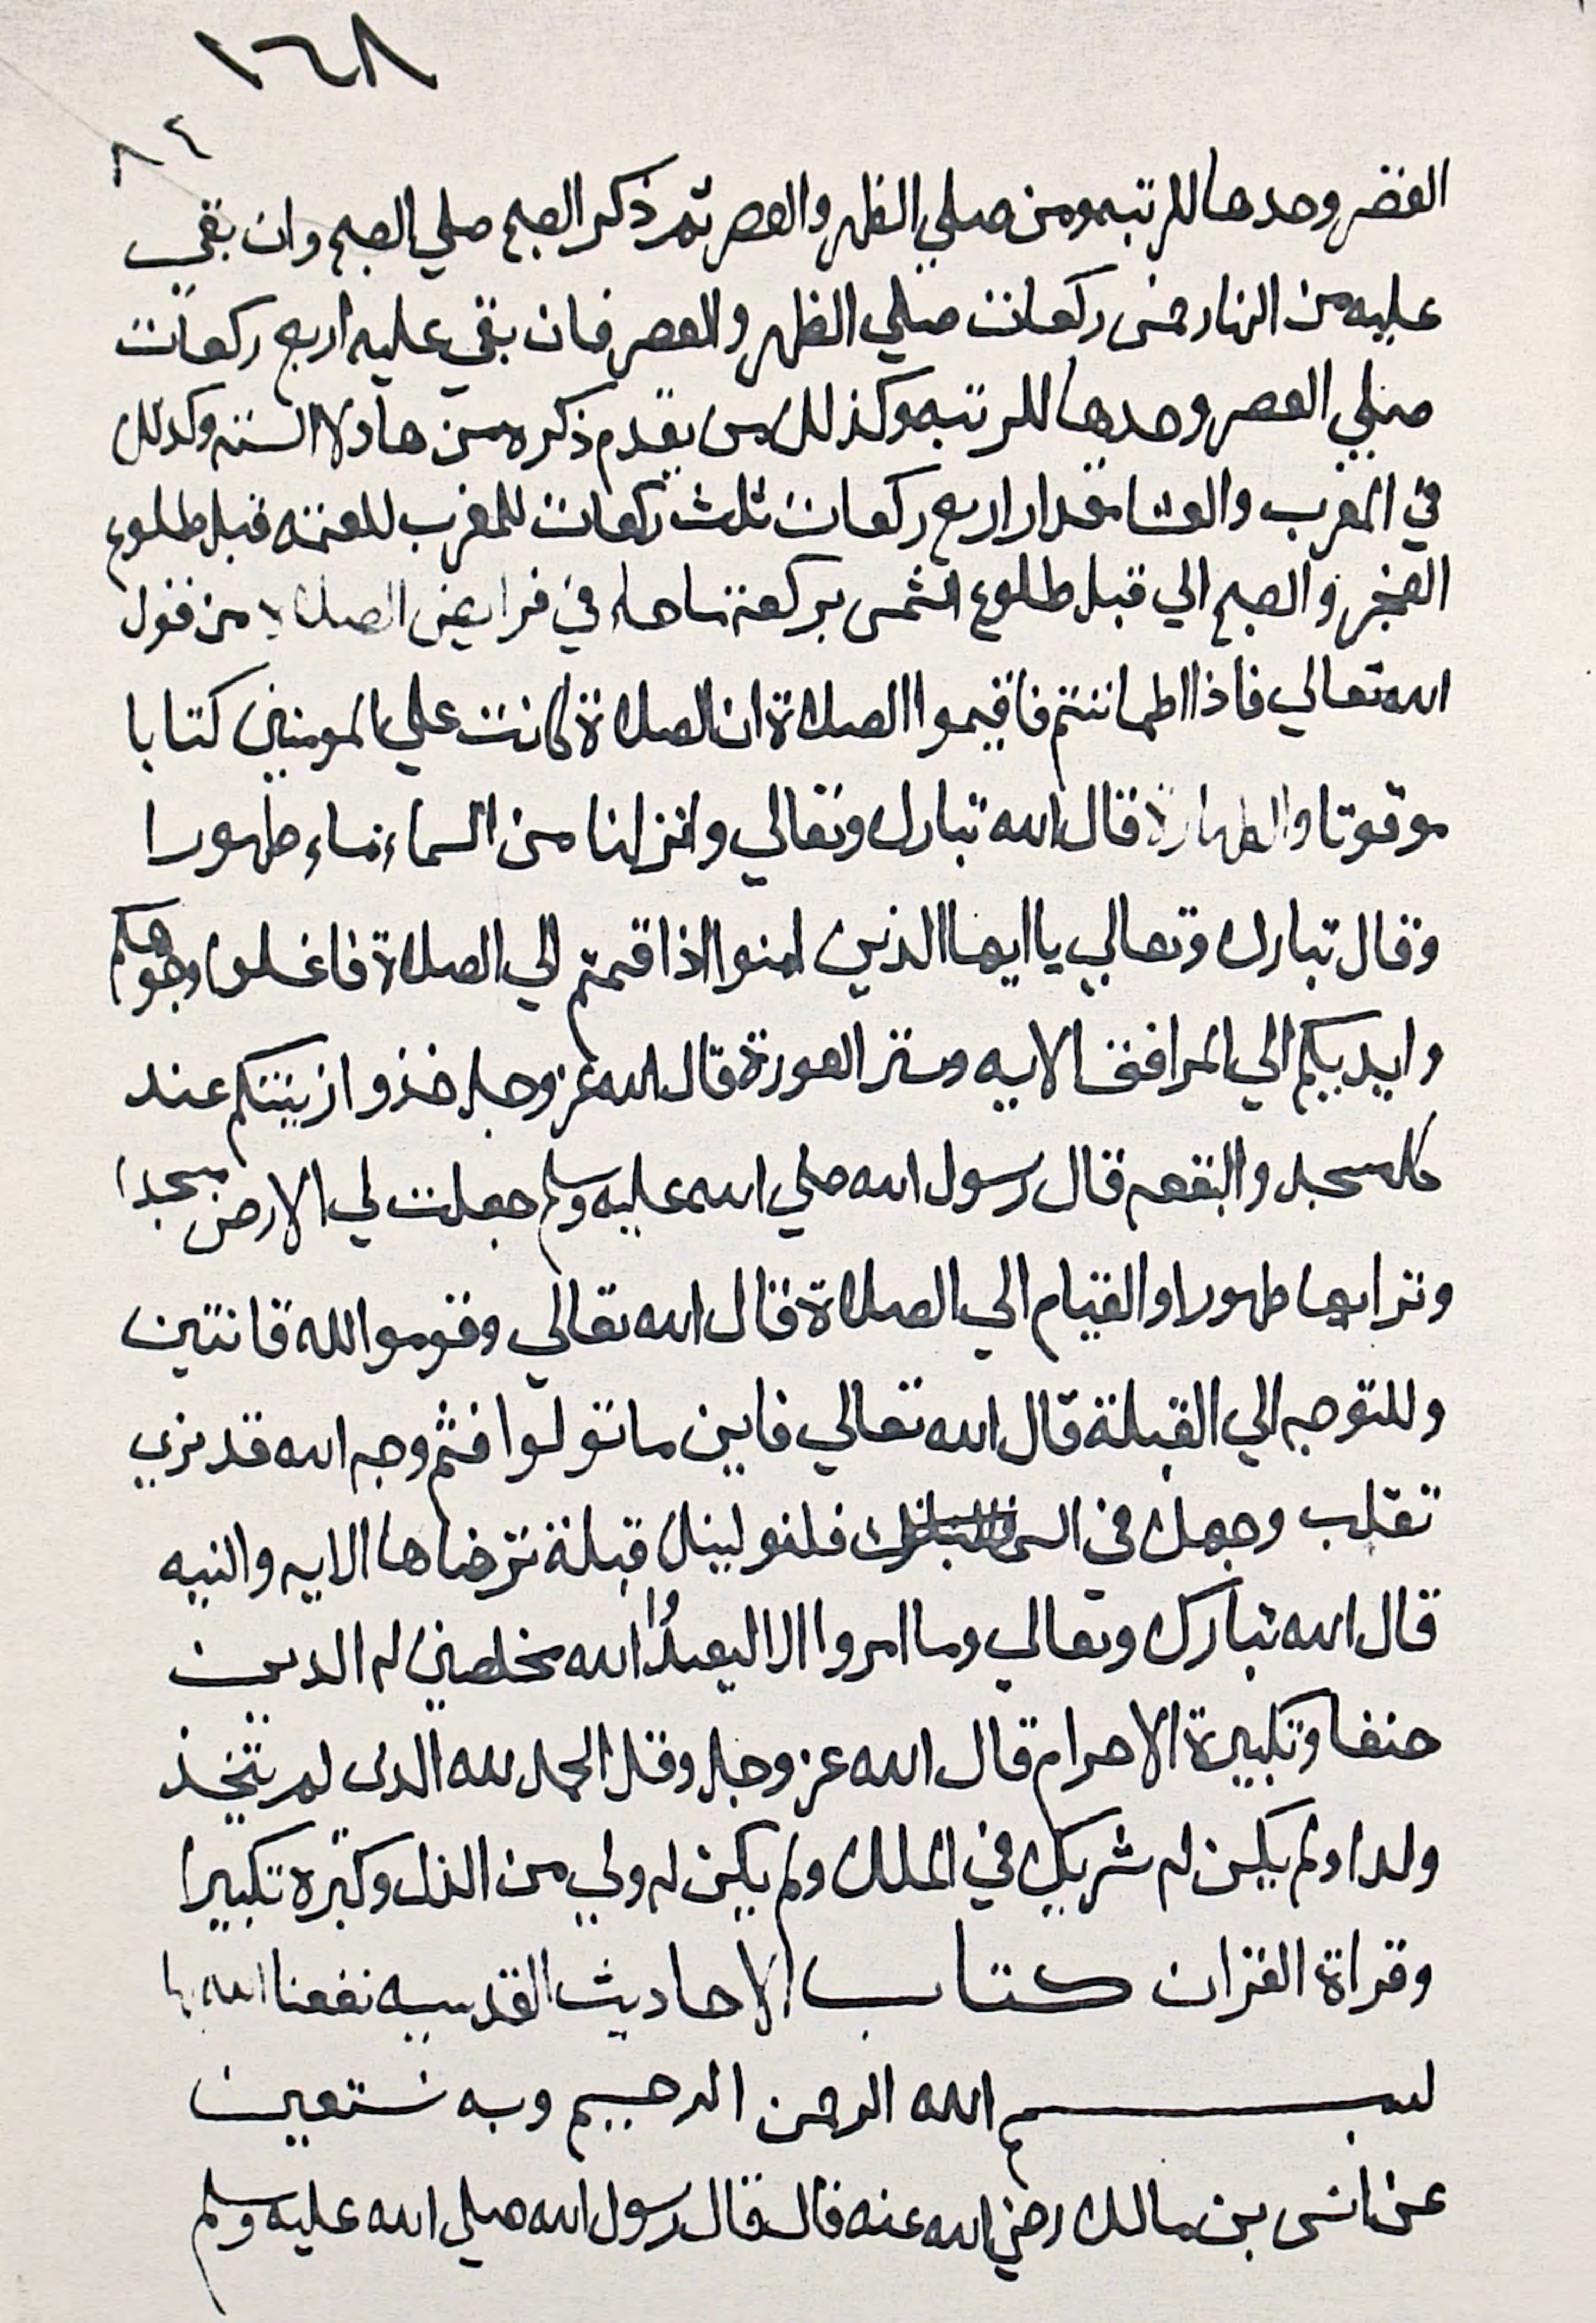 ١٦٨
٨٤
العصر وحدها للرتبه ومن صلي الظهر والعصر ثم ذكر الصبح صلي الصبح وان بقي
عليه من النهار خمس ركعات صلي الظهر والعصر فان بقي عليه اربع ركعات
صلي العصر وحدها للرتبه وكذلك من يقدم ذكره من هاولا الستة وكذلك
في المغرب والعشا مقدار اربع ركعات ثلث ركعات للمغرب للعتمه قبل طلوع
الفجر والصبح الي قبل طلوع الشمس بركعة ما جاء في فرايض الصلاة من قول
الله تعالي فاذا اطماننتم فاقيموا الصلاة ان الصلاة كانت علي المومنين كتابا
موقوتا والطهارة قال الله تبارك وتعالي وانزلنا من السماء ماء طهورا
وقال تبارك وتعالي يا ايها الذين امنوا اذا قمتم الي الصلاة فاغسلوا وجوهكم
وايديكم الي المرافق الايه وستر العورة قال الله عز وجل خذوا زينتكم عند
كل مسجد والبقعه قال رسول الله صلي الله عليه وسلم جعلت لي الارض مسجدا
وترابها طهورا والقيام الي الصلاة قال الله تعالي وقوموا لله قانتين
وللتوجه الي القبلة قال الله تعالي فاين ما تولوا فثم وجه الله قد نري
تقلب وجهك في السما فلنولينك قبلة ترضاها الايه والنيه
قال الله تبارك وتعالي وما امروا الا ليعبدوا الله مخلصين له الدين
حنفا وتكبيرة الاحرام قال الله عز وجل وقل الحمد لله الدى لم يتخذ
ولدا ولم يكن له شريك في الملك ولم يكن له ولي من الذل وكبره تكبيرا
وقراة القران كتاب الاحاديث القدسيه نفعنا الله بها
بسم الله الرحمن الرحيم وبه نستعين
عن انس بن مالك رضي الله عنه قال قال رسول الله صلي الله عليه وسلم